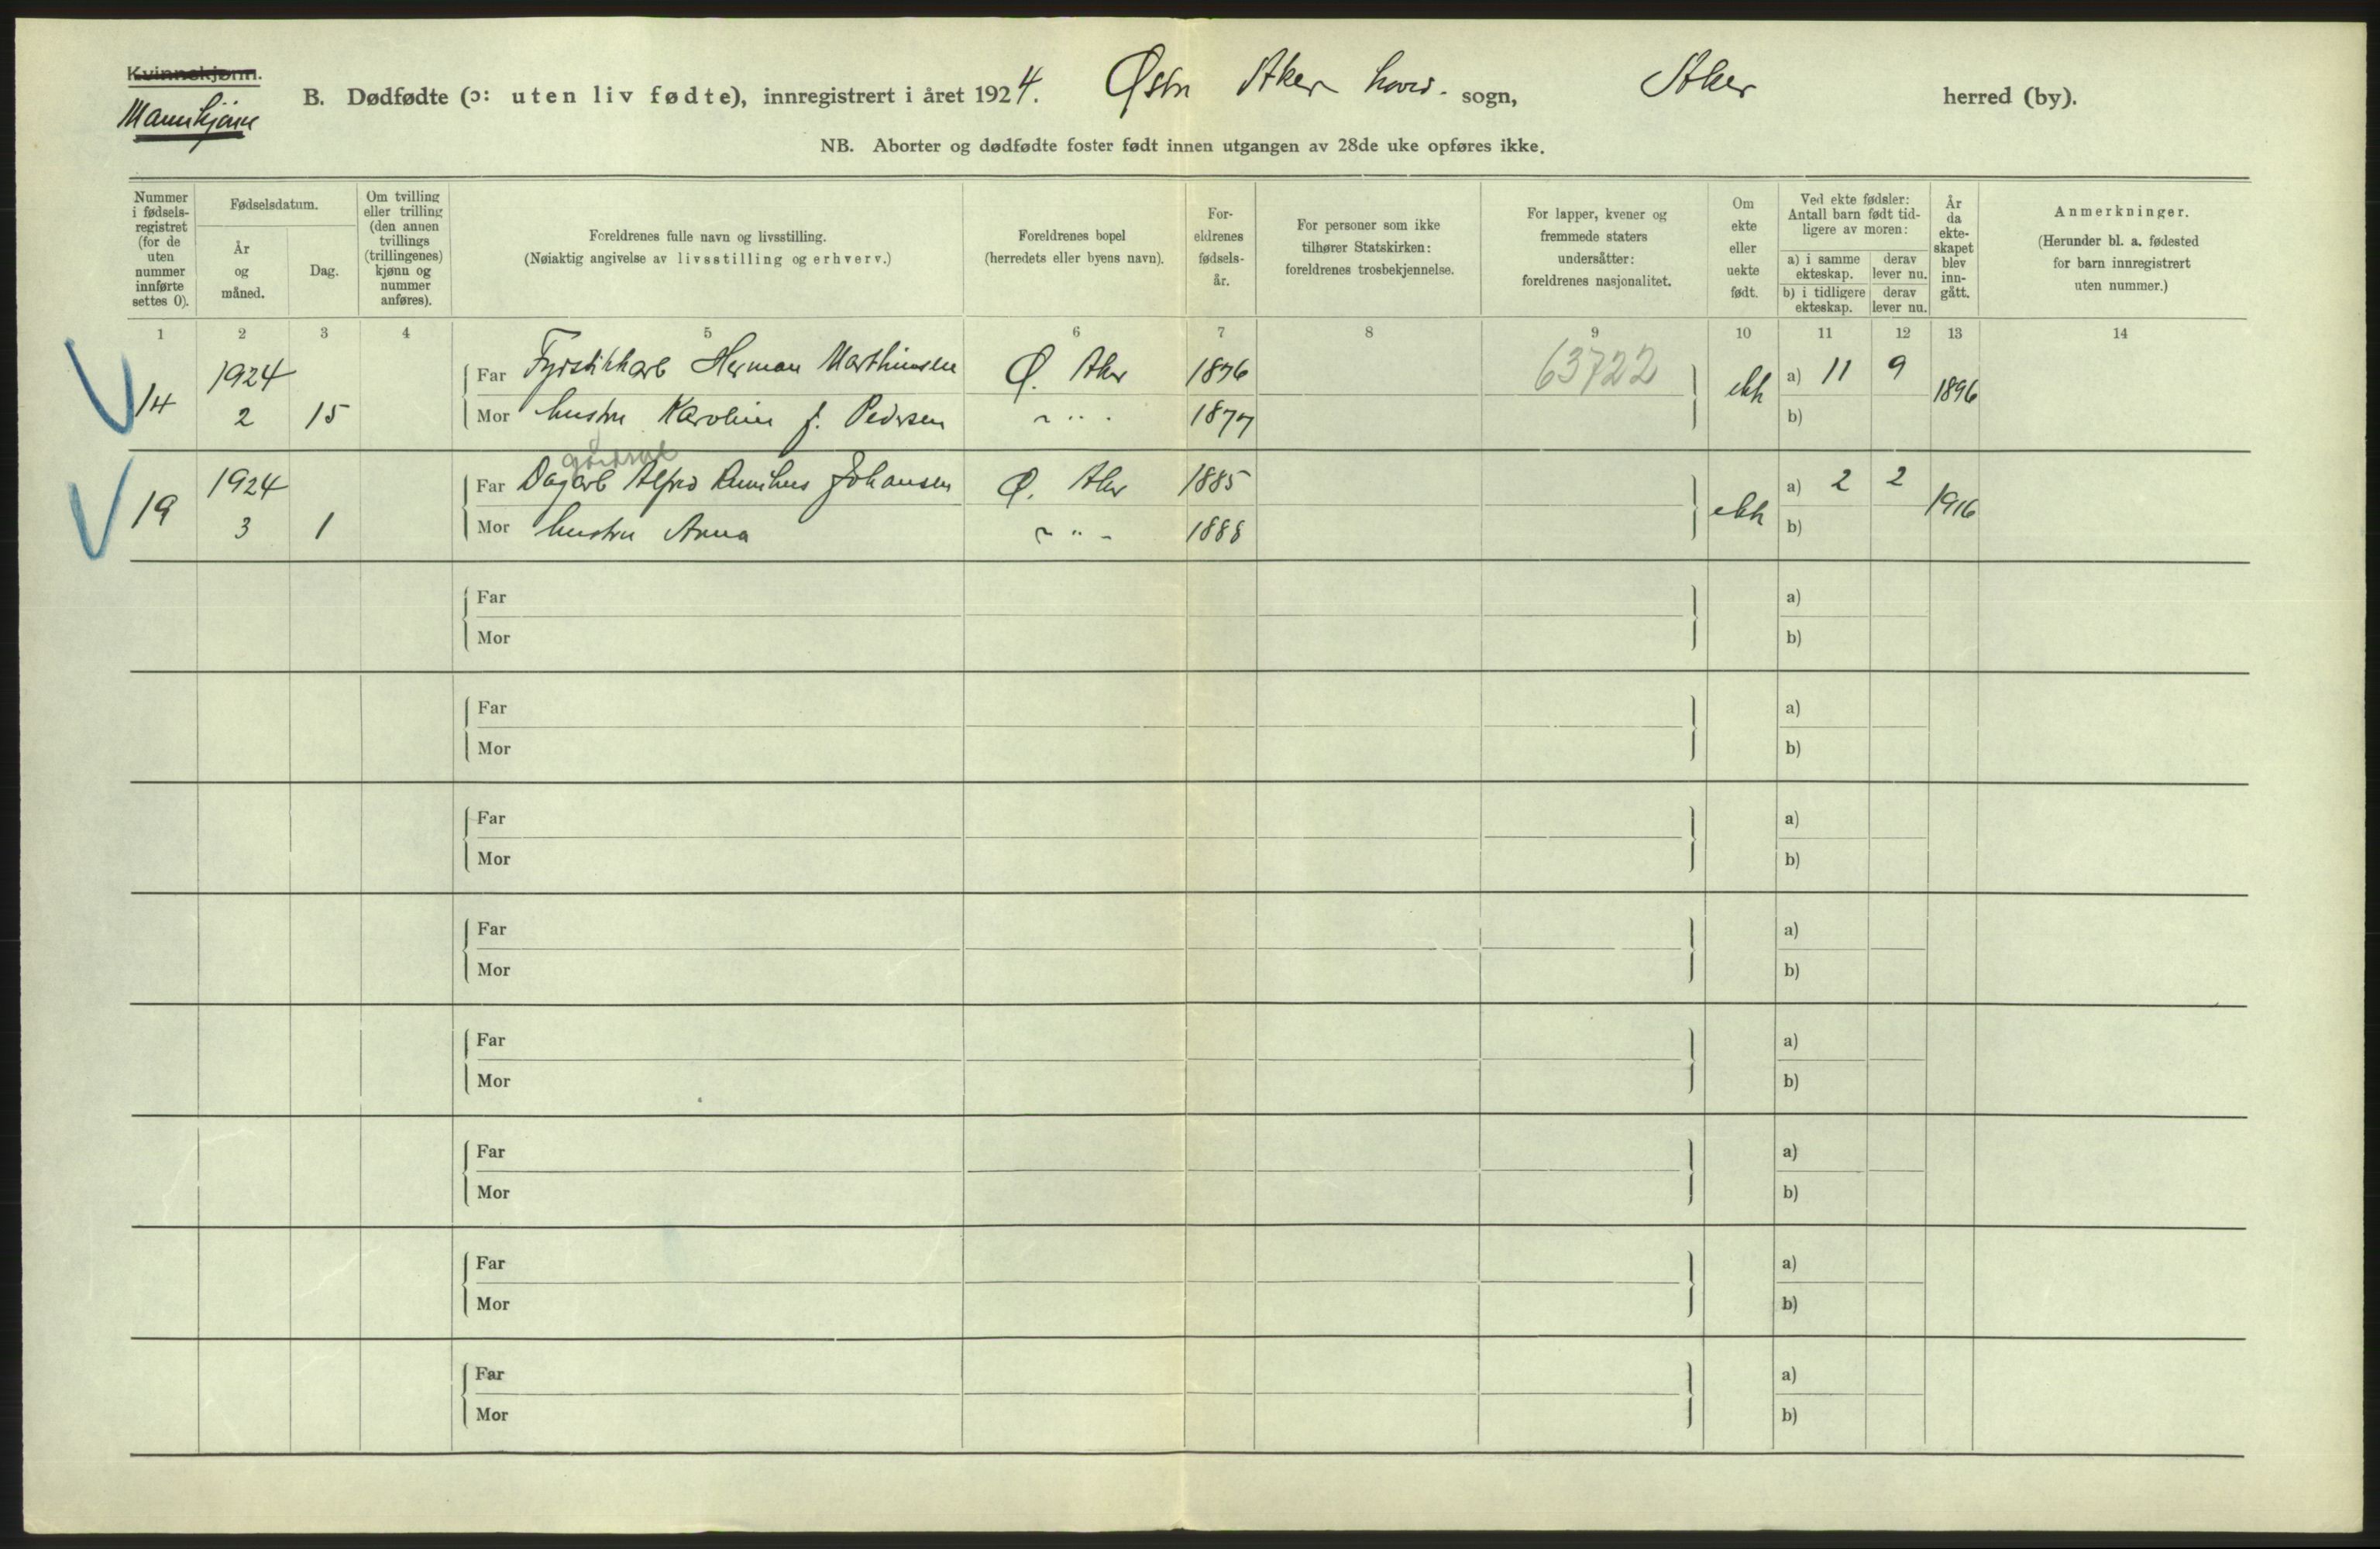 Kvinnekjønn.
Mannkjønn
B. Dødfødte (ɔ: uten liv fødte), innregistrert i året 1924. Østre Aker hoved- sogn, Aker herred (by).
NB. Aborter og dødfødte foster født innen utgangen av 28de uke opføres ikke.
Nummer i fødsels- registret (for de uten nummer innførte settes 0).
Fødselsdatum.
År og måned.
Dag.
Om tvilling eller trilling (den annen tvillings (trillingenes) kjønn og nummer anføres).
Foreldrenes fulle navn og livsstilling.
(Nøiaktig angivelse av livsstilling og erhverv.)
Foreldrenes bopel
(herredets eller byens navn).
For- eldrenes fødsels- år.
For personer som ikke tilhører Statskirken: foreldrenes trosbekjennelse.
For lapper, kvener og fremmede staters undersåtter: foreldrenes nasjonalitet.
Om ekte eller uekte født.
Ved ekte fødsler: Antall barn født tid- ligere av moren:
a) i samme ekteskap.
derav lever nu.
b) i tidligere ekteskap.
derav lever nu.
År da ekte- skapet blev inn- gått.
Anmerkninger.
(Herunder bl. a. fødested for barn innregistrert uten nummer.)
1 2 3 4 5 6 7 8 9 10 11 12 13 14
14 1924 2 15
Far Fyrstikkarb Herman Marthinsen Ø. Aker 1876 63722 ekte a) 11 9 1896
Mor hustru Karoline f. Pedersen " 1877 b)
19 1924 3 1
gårdsarb
Far Dagarb Alfred Johansen Ø. Aker 1885 ekte a) 2 2 1916
Mor hustru Anna " 1888 b)
Far a)
Mor b)
Far a)
Mor b)
Far a)
Mor b)
Far a)
Mor b)
Far a)
Mor b)
Far a)
Mor b)
Far a)
Mor b)
Far a)
Mor b)